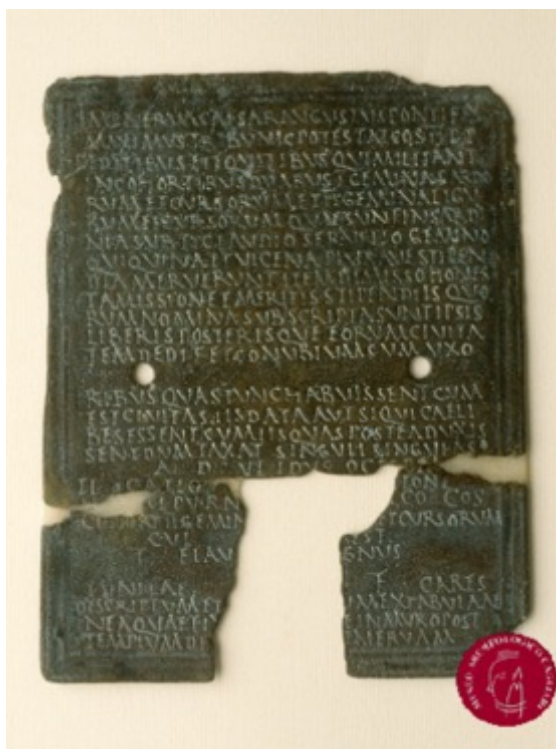 IMP NERVA CAESAR AVGVSTVS PONTIFEX
MAXIMVS TRIBVNIC POTESTAT COS
PEDITIBVS ET EQVITIBVS QVI MILITANT
IN COHORTIBVS DVABVS I GEMINA SARDO
RVM ET CVRSORVM ET II GEMINA LIGV
RVM ET CVRSORVM QVAE SVNT IN SARDI
NIA SVB TI CLAVDIO SERVILIO GEMINO
QVI QVINA ET VICENA PLVRAVE STIPEN
DIA MERVERVNT ITEM DIMISSO HONES
TA MISSIONE EMERITIS STIPENDIIS QVO
RVM NOMINA SVBSCRIPTA SVNT IPSIS
LIBERIS POSTERISQVE EORVM CIVITA
TEM DEDIT ET CONVBIVM CVM VXO
RIBVS QVAS TVNC HABVISSENT CVM
EST CIVITAS IIS DATA AVT SIQVI CAELI
BES ESSENT CVM IIS QVAS POSTEA DVXIS
SENT DVM TAXAT SINGVLI SINGVLAS
A D VI IDVS OC
COS
COHORT II GEMIN ET CVRSORVM
CVI EST
T FLAV GNVS
CARES
DESCRIPTVM ET M EX TABVLA AE
NEA QVAE FIX IN MVRO POST
TEMPLVM DI MINERVAM